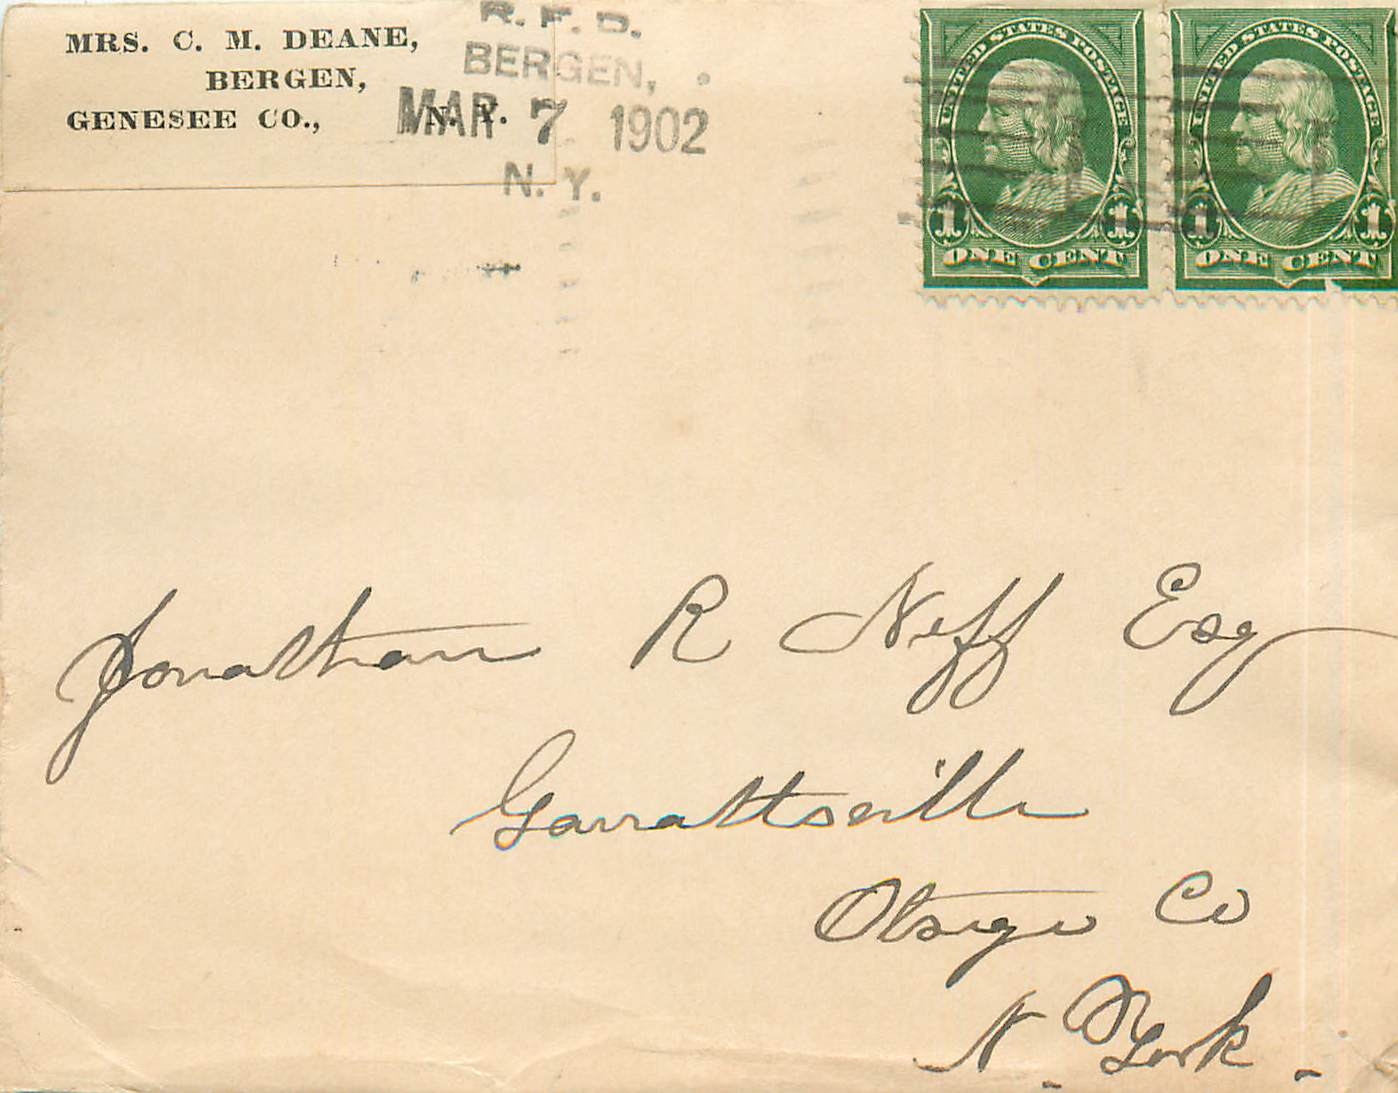 MRS. C. M. DEANE,
BERGEN,
GENESEE CO., N. Y.
R. F. D.
BERGEN,
MAR 7 1902
N. Y.
UNITED STATES POSTAGE
1 1
ONE CENT
UNITED STATES POSTAGE
1 1
ONE CENT
Jonathan R Neff Esq
Garrattsville
Otsego Co
N. York.